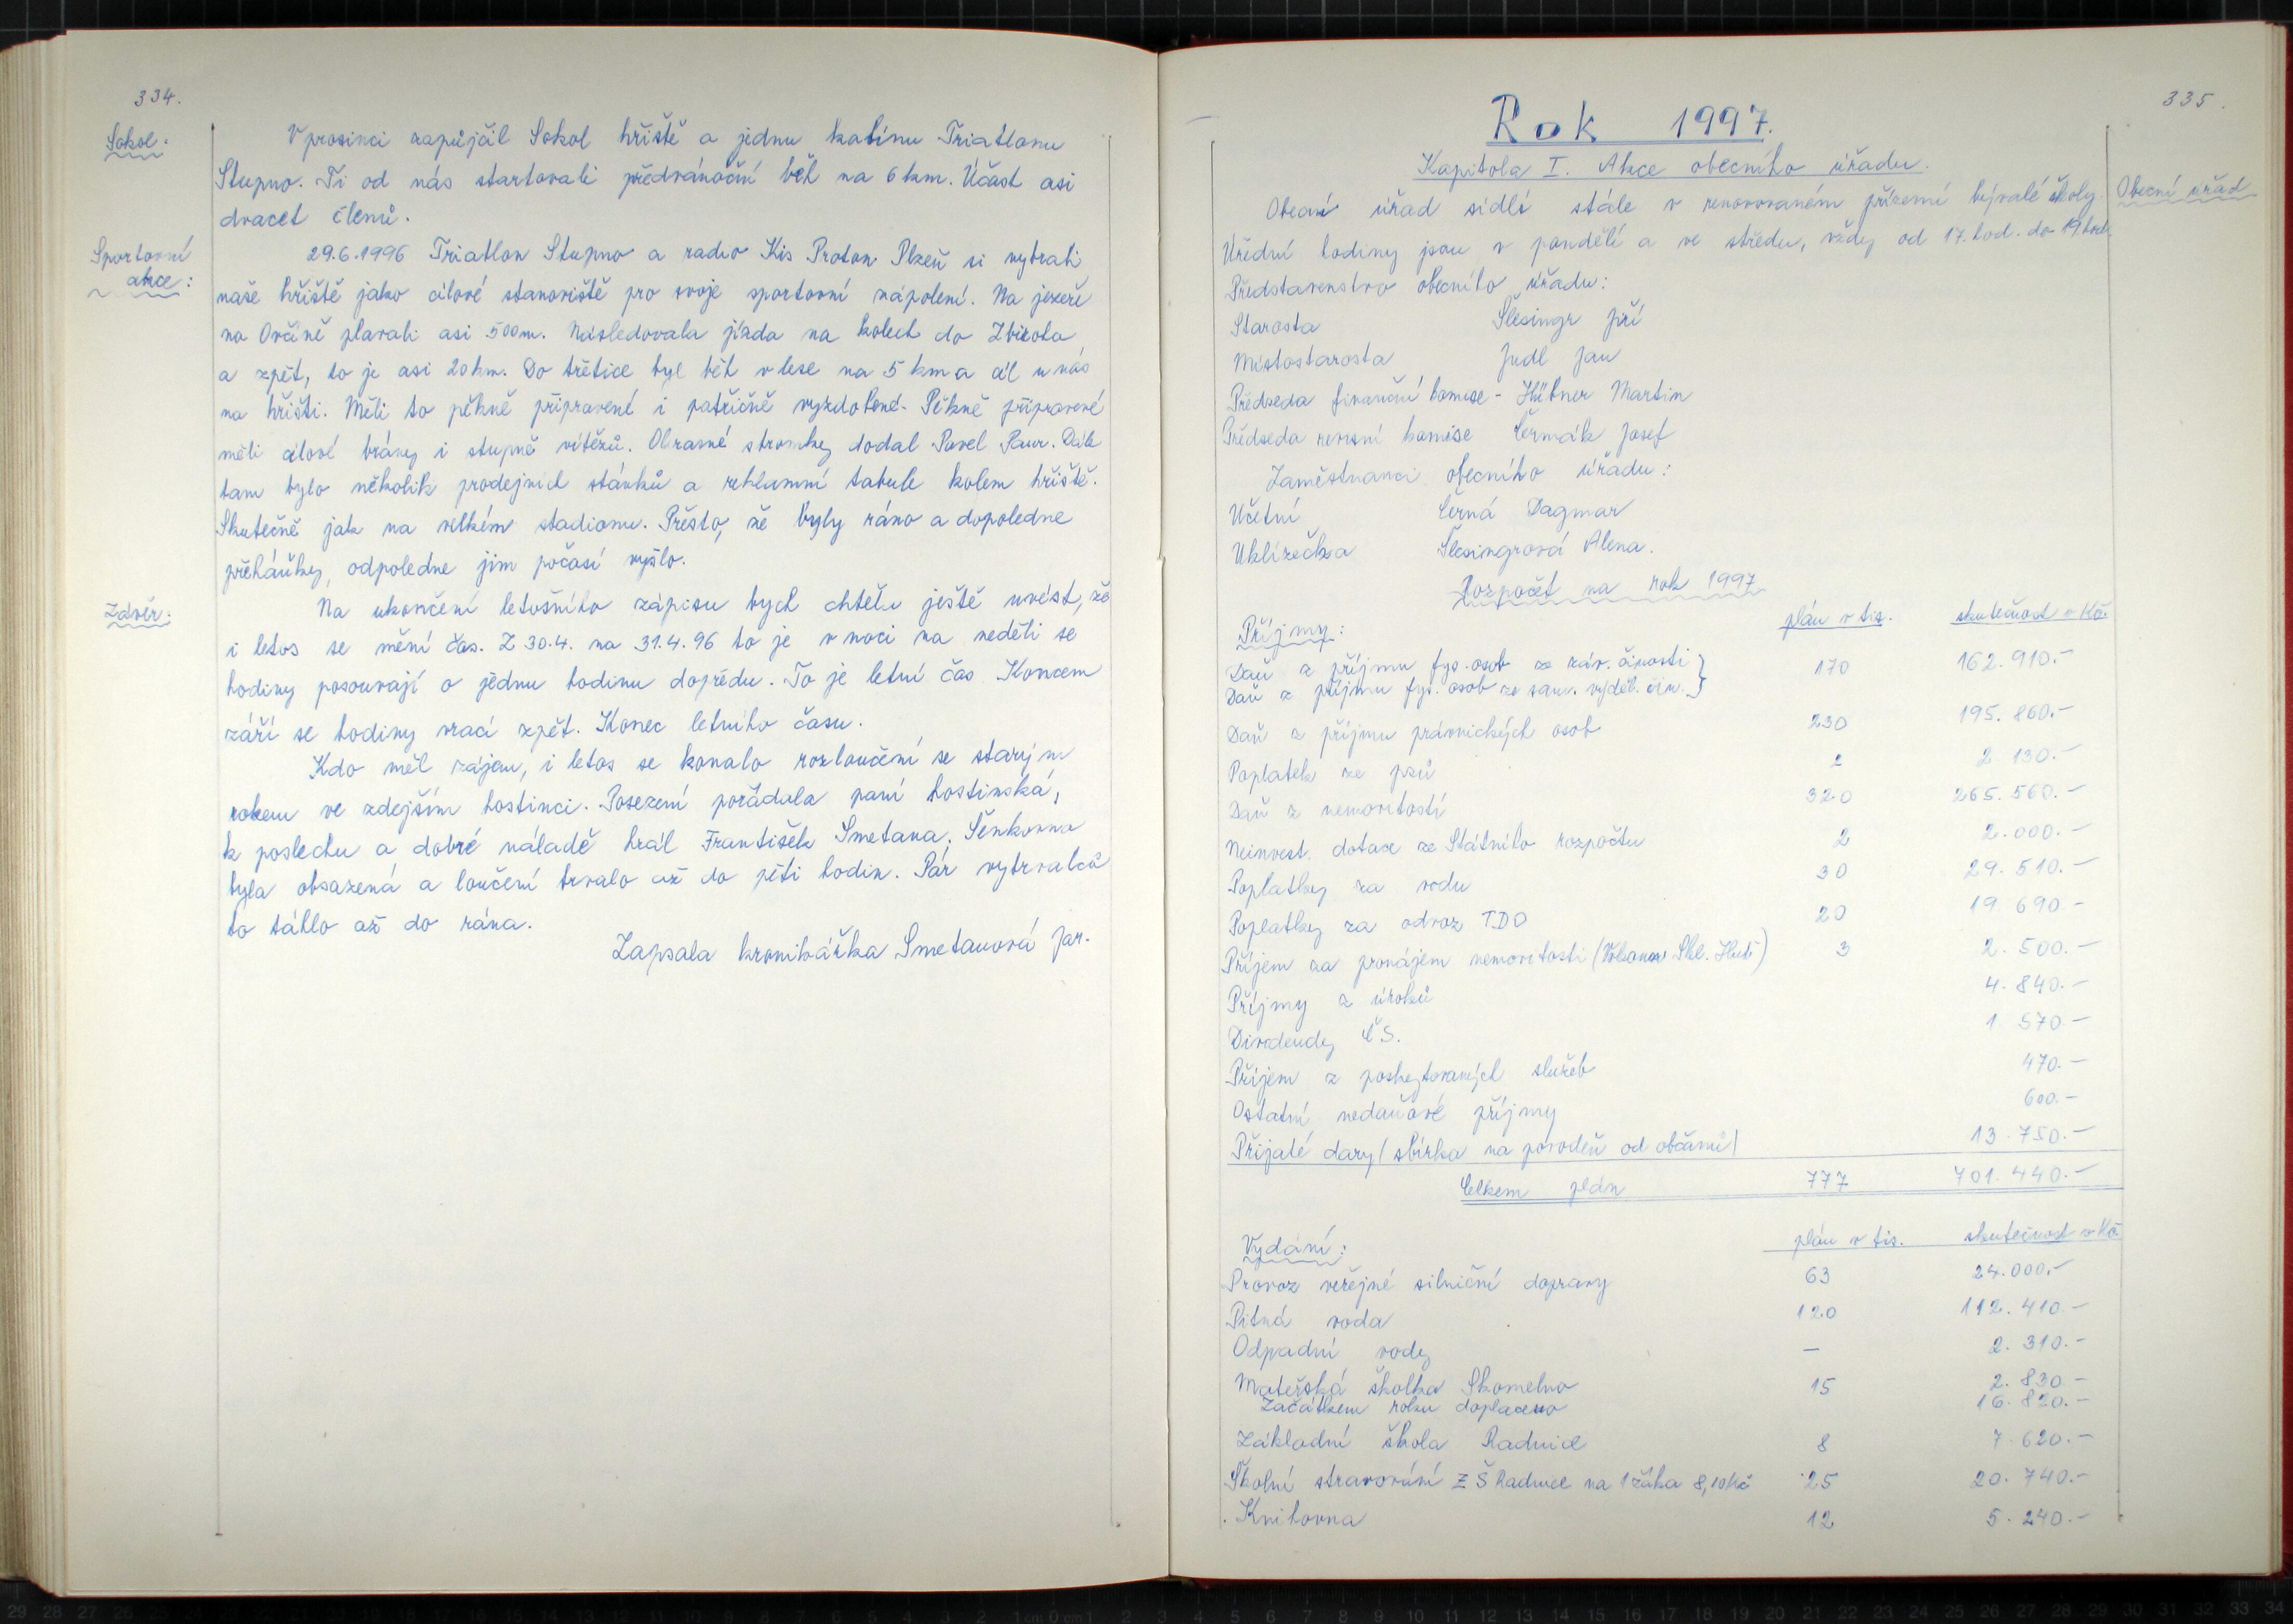 334.
Sokol:
V prosinci zapůjčil Sokol hřiště a jednu kabinu Triatlonu
Stupno. Ti od nás startovali předvánoční běh na 6 km. Účast asi
dvacet členů.
Sportovní
akce:
29.6.1996 Triatlon Stupno a radio Kis Proton Plzeň si vybrali
naše hřiště jako cílové stanoviště pro svoje sportovní zápolení. Na jezeře
na Ovčíně plavali asi 500m. Následovala jízda na kolech do Zbiroha
a zpět, to je asi 20 km. Do třetice byl běh v lese na 5 km a cíl u nás
na hřišti. Měli to pěkně připravené i patřičně vyzdobené. Pěkně připravené
měli cílové brány i stupně vítězů. Okrasné stromky dodal Pavel Paur. Dále
tam bylo několik prodejních stánků a reklamní tabule kolem hřiště.
Skutečně jak na velkém stadionu. Přesto, že byly ráno a dopoledne
přeháňky, odpoledne jim počasí vyšlo.
Závěr:
Na ukončení letošního zápisu bych chtěla ještě uvést, že
i letos se mění čas. Z 30.4. na 31.4.96 to je v noci na neděli se
hodiny posouvají o jednu hodinu dopředu. To je letní čas. Koncem
září se hodiny vrací zpět. Konec letního času.
Kdo měl zájem, i letos se konalo rozloučení se starým
rokem ve zdejším hostinci. Posezení pořádala paní hostinská,
k poslechu a dobré náladě hrál František Smetana. Šenkovna
byla obsazená a loučení trvalo až do pěti hodin. Pár vytrvalců
to táhlo až do rána.
Zapsala kronikářka Smetanová Jar.
335.
Rok 1997.
Kapitola I. Akce obecního úřadu.
Obecní úřad
Obecní úřad sídlí stále v renovovaném přízemí bývalé školy.
Úřední hodiny jsou v pondělí a ve středu, vždy od 17. hod. do 19 hod.
Představenstvo obecního úřadu:
Starosta Šlesingr Jiří
Místostarosta Judl Jan
Předseda finanční komise - Hübner Martin
Předseda revisní komise Čermák Josef
Zaměstnanci obecního úřadu:
Účetní Černá Dagmar
Uklizečka Šlesingrová Alena.
Rozpočet na rok 1997
Příjmy: plán v tis. skutečnost v Kč.
Daň z příjmu fyz. osob ze záv. činosti } 170 162.910.-
Daň z příjmu fyz. osob ze sam. výděl. čin. }
Daň z příjmu právnických osob 230 195.860.-
Poplatek ze psů 2 2 130.-
Daň z nemovitostí 320 265.560.-
Neinvest. dotace ze Státního rozpočtu 2 2.000.-
Poplatky za vodu 30 29.510.-
Poplatky za odvoz TDO 20 19 690.-
Příjem za pronájem nemovitosti (Skl. Hutí) 3 2.500.-
Příjmy z úroků 4.840.-
Dividendy ČS. 1 570.-
Příjem z poskytovaných služeb 470.-
Ostatní nedaňové příjmy 600.-
Přijaté dary / sbírka na povodeň od občanů / 13.750.-
Celkem plán 777 701.440.-
Vydání: plán v tis. skutečnost v Kč.
Provoz veřejné silniční dopravy 63 24.000.-
Pitná voda 120 112.410.-
Odpadní vody — 2.310.-
Mateřská školka Skomelno 15 2.830-
Začátkem roku doplaceno 16.820.-
Základní škola Radnice 8 7.620.-
Školní stravování ZŠ Radnice na 1 žáka 8,10 Kč 25 20.740.-
Knihovna 12 5.240.-